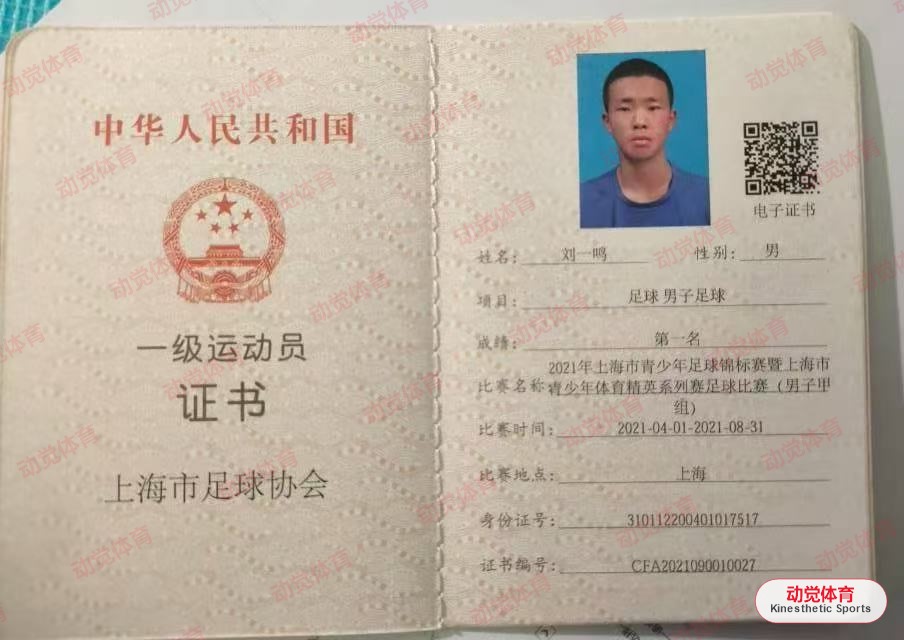 中华人民共和国
一级运动员
证书
上海市足球协会
电子证书
姓名: 刘一鸣 性别: 男
项目: 足球 男子足球
成绩: 第一名
2021年上海市青少年足球锦标赛暨上海市
比赛名称 青少年体育精英系列赛足球比赛（男子甲
组）
比赛时间: 2021-04-01-2021-08-31
比赛地点: 上海
身份证号: 310112200401017517
证书编号: CFA2021090010027
动觉体育
Kinesthetic Sports